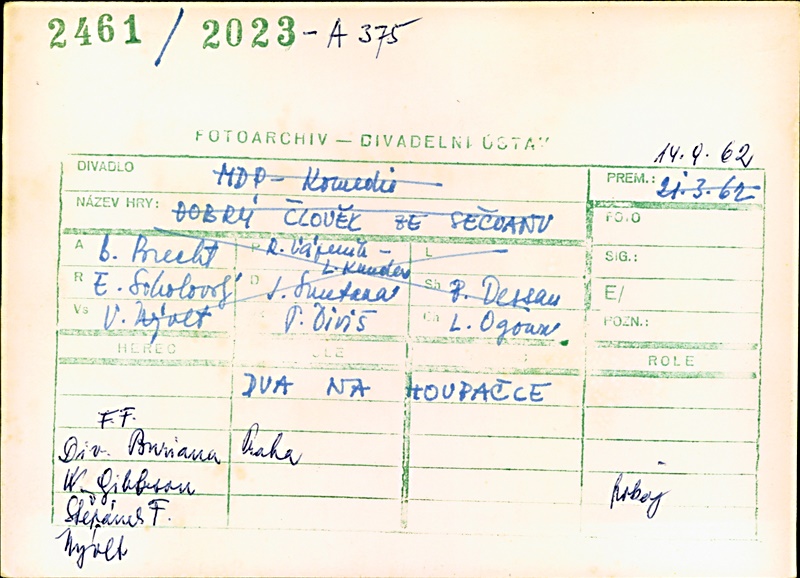 2461 / 2023 - A 375
FOTOARCHIV — DIVADELNÍ ÚSTAV
14.9.62
DIVADLO MDP - Komedie PREM.: 21.3.62
NÁZEV HRY: DOBRÝ ČLOVĚK ZE SEČUANU FOTO
A B. Brecht P R. Vápeník - L
L. Kundera SIG.:
R E. Sokolovský D J. Smetana Sb P. Dessau E/
Vs V. Nývlt P. Diviš Ch L. Ogoun POZN.:
HEREC ROLE
DVA NA HOUPAČCE
F.F.
Div. Buriana Praha
W. Gibbson
Štěpánek F.
Nývlt